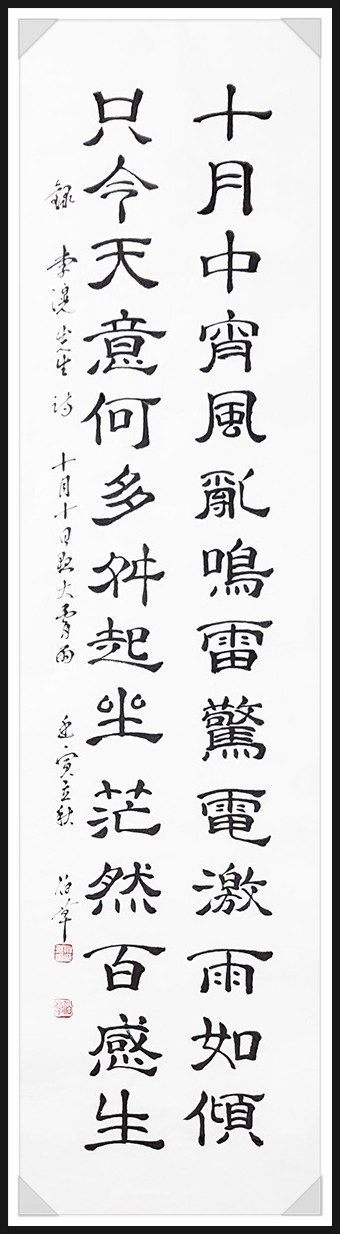 十月中宵風亂鳴雷驚電激雨如傾
只今天意何多舛起坐茫然百感生
錄 李 先生 詩 十月十日夜大雷雨 壬寅立秋